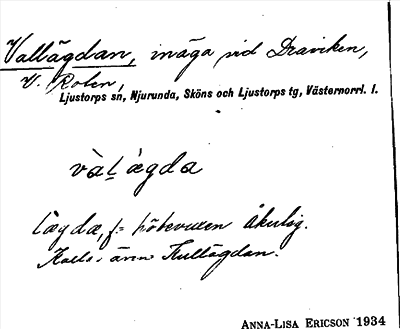 Vallägdan, inäga vid Draviken,
V. Rolen,
Ljustorps sn, Njurunda, Sköns och Ljustorps tg, Västernorrl. l.
vàḷægda
lægda, f= höbevuxen åkulig.
Kalls även Kullägdan.
ANNA-LISA ERICSON 1934